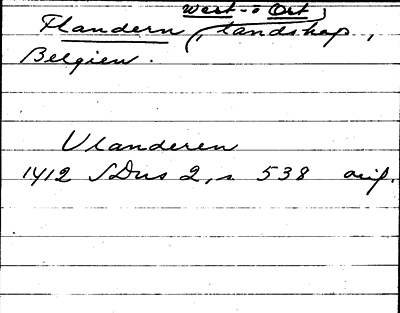 West- o Ost
Flandern, landskap,
Belgien.
Vlanderen
1412 SDns 2, s. 538 orig.